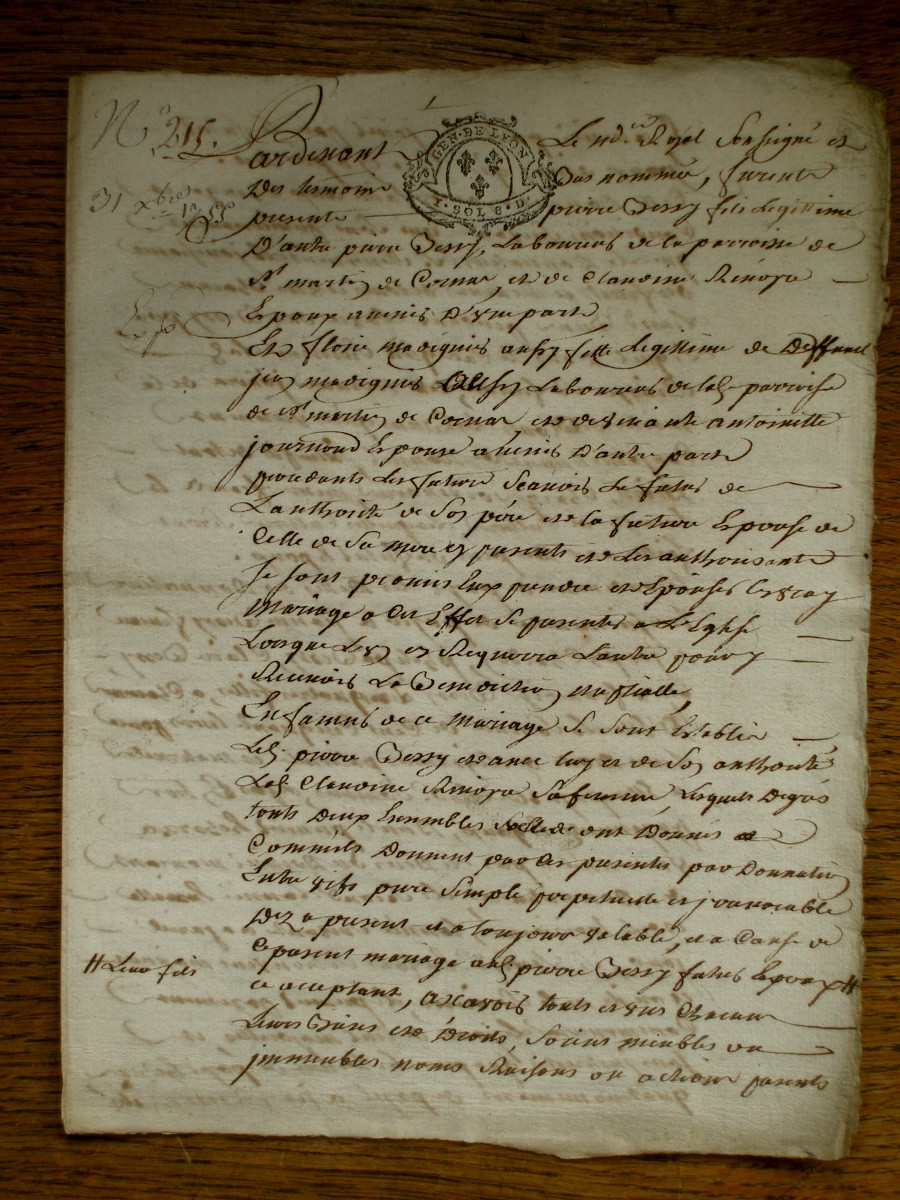 N° 215.
31 xbre 1755
Exp
Pardevant Le nore Royal Soussigné et
Des temoins Bas nommés, furent
presents pierre Bessy fils Legittime
D'autre pierre Bessy, Laboureur de la parroisse de
St martin de Cornas, et de Claudine
Epoux avenir D'une part
Et florie aussy fille Legittime de Deffunt
jean aussy Laboureur de lad parroisse
de St martin de Cornas et de vivante antoinette
journoud Epouse avenir D'autre part
procedants Les futurs Scavoir Le futur de
L'authorité de Son père et la future Epouse de
Celle de Sa mere et parents et Les authorisants
Se sont promis Eux prendre et Epouser en vray
Mariage a Cet Effet Se presenter a L'Eglise
Lorsque L'un en Requerra L'autre pour y
Recevoir La Benediction nuptialle,
En faveur de ce Mariage Se Sont Establis
Led pierre Bessy et avec luy et de Son authorité
Lad Claudine Sa femme, Lesquels De gré
touts Deux Ensembles ont Donnés
Comme ils Donnent par Ces presentes par Donnation
Entre vifs pure Simple perpetuelle et jrrevocable
Dez a present et a toujours valable, et a Cause de
Ce present mariage aud pierre Bessy futur Epoux #
# Leur fils
ce acceptant, a Scavoir touts et uns Chacuns
Leurs Biens et Droits, Soient meubles ou
jmmeubles noms Raisons ou actions presents
GEN. DE LYON
1. SOL 8. D.